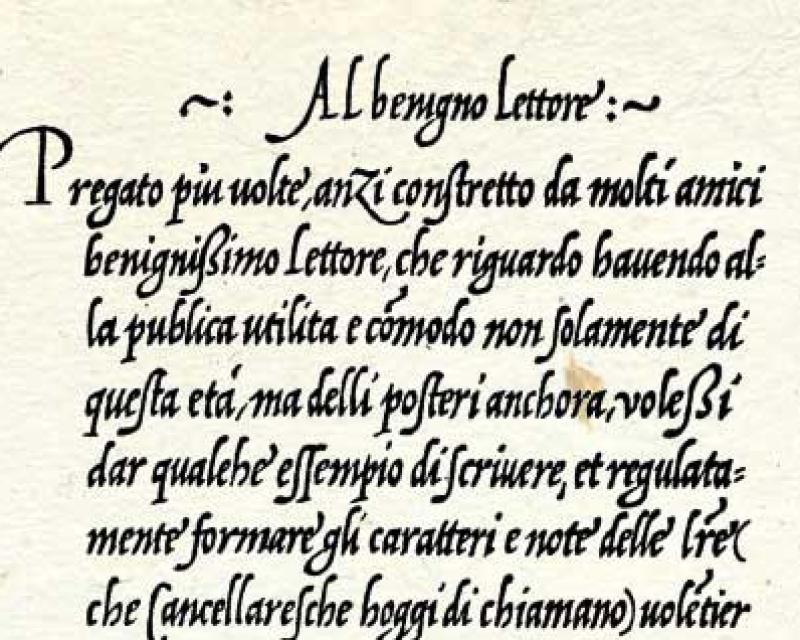 ~: Al benigno lettore :~
Pregato piu uolte, anzi constretto da molti amici
benignißimo Lettore, che riguardo hauendo al-
la publica utilita e cōmodo non solamente di
questa etá, ma delli posteri anchora, voleßi
dar qualche essempio di scriuere, et regulata-
mente formare gli caratteri e note delle lr̃e (
che Cancellaresche hoggi di chiamano) uolẽtier